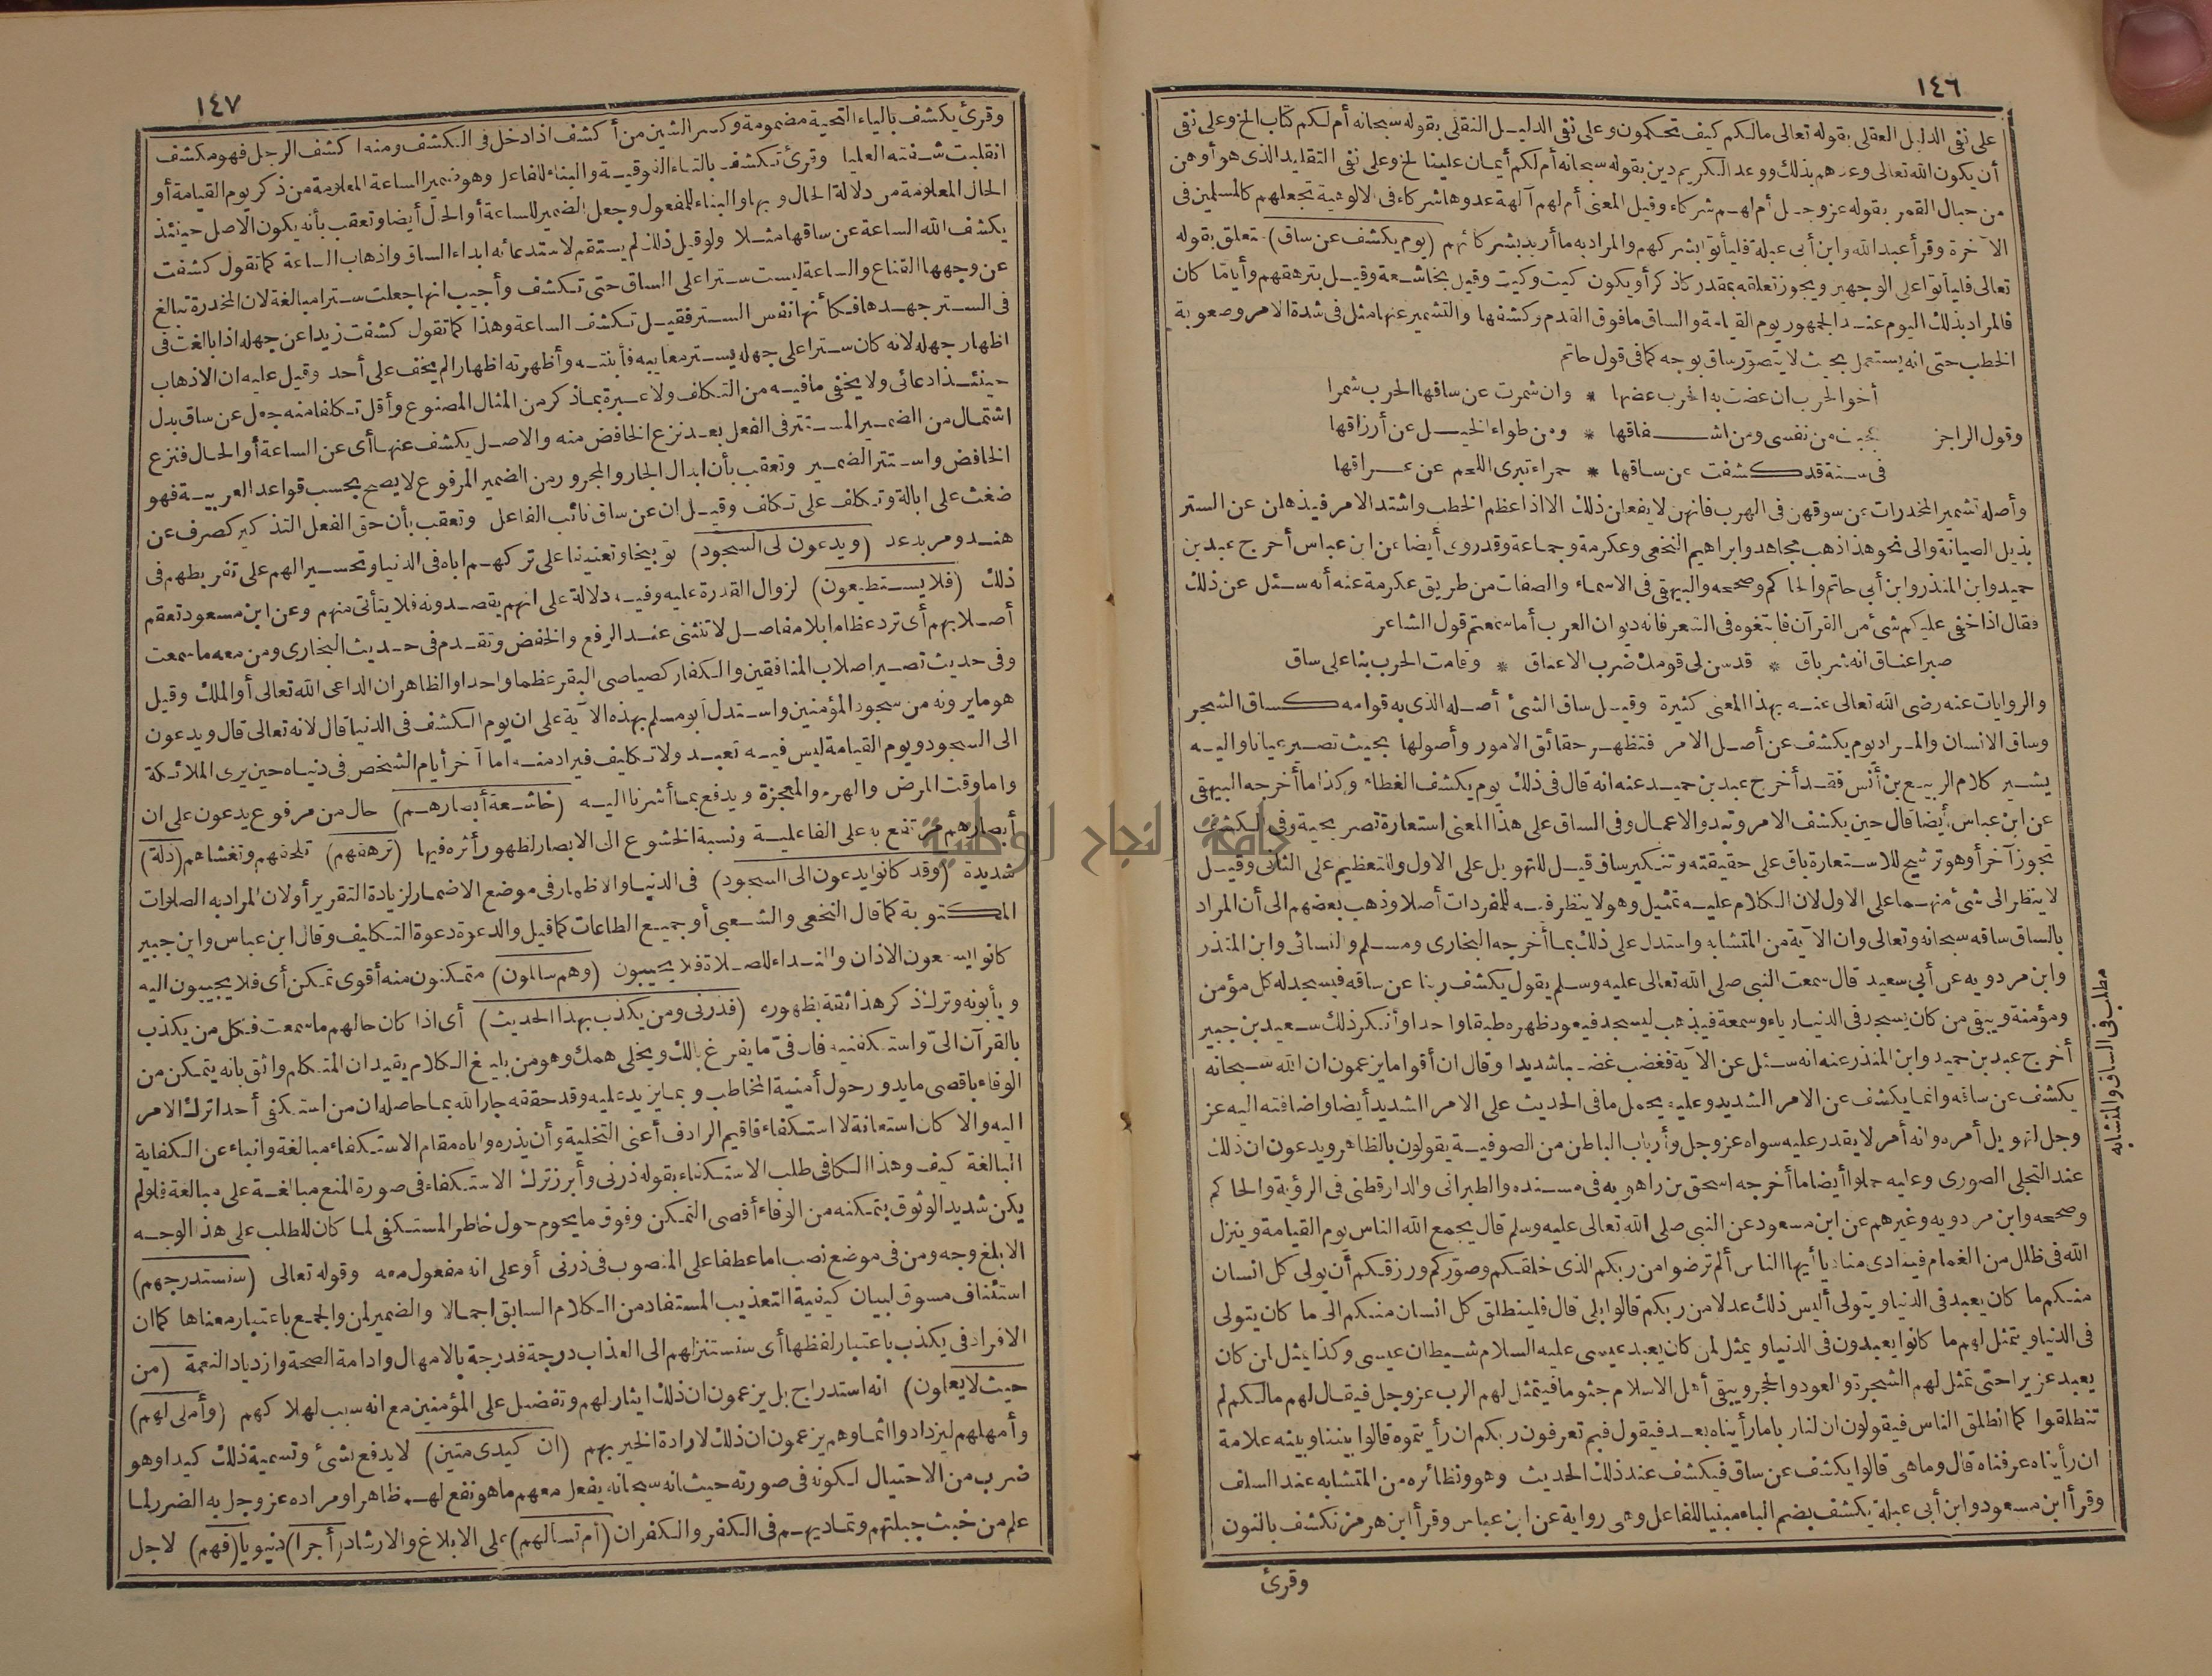 ١٤٦
على نفي الدليل العقلي بقوله تعالى مالكم كيف تحكمون وعلى نفي الدليل النقلي بقوله سبحانه أم لكم كتاب الخ وعلى نفي
أن يكون الله تعالى وعدهم بذلك ووعد الكريم دين بقوله سبحانه أم لكم أيمان علينا الخ وعلى نفي التقليد الذي هو أوهن
من حبال القمر بقوله عز وجل أم لهم شركاء وقيل المعنى أم لهم آلهة عدوها شركاء في الالوهية تجعلهم كالمسلمين في
الآخرة وقرأ عبد الله وابن أبي عبلة فليأتوا بشركهم والمراد به ما أريد بشركائهم (يوم يكشف عن ساق) متعلق بقوله
تعالى فليأتوا على الوجهين ويجوز تعلقه بمقدر كاذكر أو يكون كيت وكيت وقيل بخاشعة وقيل بترهقهم وأياما كان
فالمراد بذلك اليوم عند الجمهور يوم القيامة والساق مافوق القدم وكشفها والتشمير عنها مثل في شدة الامر وصعوبة
الخطب حتى انه يستعمل بحيث لا يتصور ساق بوجه كما في قول حاتم
أخو الحرب ان عضت به الحرب عضها * وان شمرت عن ساقها الحرب شمرا
وقول الراجز عجبت من نفسي ومن اشفاقها * ومن طواء الخيل عن أرزاقها
في سنة قد كشفت عن ساقها * حمراء تبرى اللحم عن عراقها
وأصله تشمير المخدرات عن سوقهن في الهرب فانهن لا يفعلن ذلك الا اذا عظم الخطب واشتد الامر فيذهلن عن الستر
بذيل الصيانة والى نحو هذا ذهب مجاهد وابراهيم النخعي وعكرمة وجماعة وقد روى أيضا عن ابن عباس أخرج عبد بن
حميد وابن المنذر وابن أبي حاتم والحاكم وصححه والبيهقي في الاسماء والصفات من طريق عكرمة عنه أنه سئل عن ذلك
فقال اذا خفي عليكم شئ من القرآن فابتغوه في الشعر فانه ديوان العرب أما سمعتم قول الشاعر
صبرا عناق انه شرباق * قد سن لي قومك ضرب الاعناق * وقامت الحرب بنا على ساق
والروايات عنه رضى الله تعالى عنه بهذا المعنى كثيرة وقيل ساق الشئ أصله الذي به قوامه كساق الشجر
وساق الانسان والمراد يوم يكشف عن أصل الامر فتظهر حقائق الامور وأصولها بحيث تصير عيانا واليه
يشير كلام الربيع بن أنس فقد أخرج عبد بن حميد عنه انه قال في ذلك يوم يكشف الغطاء وكذا ما أخرجه البيهقي
عن ابن عباس أيضا قال حين يكشف الامر وتبدو الاعمال وفي الساق على هذا المعنى استعارة تصريحية وفي الكشف
تجوز آخر أو هو ترشيح للاستعارة باق على حقيقته وتنكير ساق قيل للتهويل على الاول وللتعظيم على الثاني وقيل
لا ينظر الى شئ منهما على الاول لان الكلام عليه تمثيل وهو لا ينظر فيه للمفردات أصلا وذهب بعضهم الى أن المراد
بالساق ساقه سبحانه وتعالى وان الآية من المتشابه واستدل على ذلك بما أخرجه البخاري ومسلم والنسائي وابن المنذر
وابن مردويه عن أبي سعيد قال سمعت النبي صلى الله تعالى عليه وسلم يقول يكشف ربنا عن ساقه فيسجد له كل مؤمن
ومؤمنة ويبقى من كان يسجد في الدنيا رياء وسمعة فيذهب ليسجد فيعود ظهره طبقا واحدا وأنكر ذلك سعيد بن جبير
أخرج عبد بن حميد وابن المنذر عنه انه سئل عن الآية فغضب غضبا شديدا وقال ان أقواما يزعمون ان الله سبحانه
يكشف عن ساقه وانما يكشف عن الامر الشديد وعليه يحمل ما في الحديث على الامر الشديد أيضا واضافته اليه عز
وجل لتهويل أمره وانه أمر لا يقدر عليه سواه عز وجل وأرباب الباطن من الصوفية يقولون بالظاهر ويدعون ان ذلك
عند التجلي الصوري وعليه حملوا أيضا ما أخرجه اسحق بن راهويه في مسنده والطبراني والدارقطني في الرؤية والحاكم
وصححه وابن مردويه وغيرهم عن ابن مسعود عن النبي صلى الله تعالى عليه وسلم قال يجمع الله الناس يوم القيامة وينزل
الله في ظلل من الغمام فينادي مناد يا أيها الناس ألم ترضوا من ربكم الذي خلقكم وصوركم ورزقكم أن يولى كل انسان
منكم ما كان يعبد في الدنيا ويتولى أليس ذلك عدلا من ربكم قالوا بلى قال فلينطلق كل انسان منكم الى ما كان يتولى
في الدنيا ويتمثل لهم ما كانوا يعبدون في الدنيا ويمثل لمن كان يعبد عيسى عليه السلام شيطان عيسى وكذا يمثل لمن كان
يعبد عزيرا حتى تمثل لهم الشجرة والعود والحجر ويبقى أهل الاسلام جثوما فيتمثل لهم الرب عز وجل فيقال لهم مالكم لم
تنطلقوا كما انطلق الناس فيقولون ان لنا ربا ما رأيناه بعد فيقول فبم تعرفون ربكم ان رأيتموه قالوا بيننا وبينه علامة
ان رأيناه عرفناه قال وما هي قالوا يكشف عن ساق فيكشف عند ذلك الحديث وهو ونظائره من المتشابه عند السلف
وقرأ ابن مسعود وابن أبي عبلة يكشف بضم الياء مبنيا للفاعل وهي رواية عن ابن عباس وقرأ ابن هرمز نكشف بالنون
وقرئ
مطلب في الساق والمتشابه
١٤٧
وقرئ يكشف بالياء التحتية مضمومة وكسر الشين من أكشف اذا دخل في الكشف ومنه أكشف الرجل فهو مكشف
انقلبت شفته العليا وقرئ تكشف بالتاء الفوقية والبناء للفاعل وهو ضمير الساعة المعلومة من ذكر يوم القيامة أو
الحال المعلومة من دلالة الحال وبها والبناء للمفعول وجعل الضمير للساعة أو الحال أيضا وتعقب بأنه يكون الاصل حينئذ
يكشف الله الساعة عن ساقها مثلا ولو قيل ذلك لم يستقم لاستدعائه ابداء الساق واذهاب الساعة كما تقول كشفت
عن وجهها القناع والساعة ليست سترا على الساق حتى تكشف وأجيب انها جعلت سترا مبالغة لان المخدرة تبالغ
في الستر جهدها فكأنها نفس الستر فقيل تكشف الساعة وهذا كما تقول كشفت زيدا عن جهله اذا بالغت في
اظهار جهله لانه كان سترا على جهله يستر معايبه فأبنته وأظهرته اظهارا لم يخف على أحد وقيل عليه ان الاذهاب
حينئذ ادعائي ولا يخفى ما فيه من التكلف ولا عبرة بما ذكر من المثال المصنوع وأقل تكلفا منه جعل عن ساق بدل
اشتمال من الضمير المستتر في الفعل بعد نزع الخافض منه والاصل يكشف عنها أي عن الساعة أو الحال فنزع
الخافض واستتر الضمير وتعقب بأن ابدال الجار والمجرور من الضمير المرفوع لا يصح بحسب قواعد العربية فهو
ضغث على ابالة وتكلف على تكلف وقيل ان عن ساق نائب الفاعل وتعقب بأن حق الفعل التذكير كصرف عن
هند ومر بدعد (ويدعون الى السجود) توبيخا وتعنيفا على تركهم اياه في الدنيا وتحسيرا لهم على تفريطهم في
ذلك (فلا يستطيعون) لزوال القدرة عليه وفيه دلالة على انهم يقصدونه فلا يتأتى منهم وعن ابن مسعود تعقم
أصلابهم أي ترد عظاما بلا مفاصل لا تنثني عند الرفع والخفض وتقدم في حديث البخاري ومن معه ما سمعت
وفي حديث تصير اصلاب المنافقين والكفار كصياصي البقر عظما واحدا والظاهر ان الداعي الله تعالى أو الملك وقيل
هو ما يرونه من سجود المؤمنين واستدل أبو مسلم بهذه الآية على ان يوم الكشف في الدنيا قال لانه تعالى قال ويدعون
الى السجود ويوم القيامة ليس فيه تعبد ولا تكليف فيراد منه اما آخر أيام الشخص في دنياه حين يرى الملائكة
واما وقت المرض والهرم والمعجزة ويدفع بما أشرنا اليه (خاشعة أبصارهم) حال من مرفوع يدعون على ان
أبصارهم مرتفع به على الفاعلية ونسبة الخشوع الى الابصار لظهور أثره فيها (ترهقهم) تلحقهم وتغشاهم (ذلة)
شديدة (وقد كانوا يدعون الى السجود) في الدنيا والاظهار في موضع الاضمار لزيادة التقرير أو لان المراد به الصلوات
المكتوبة كما قال النخعي والشعبي أو جميع الطاعات كما قيل والدعوة دعوة التكليف وقال ابن عباس وابن جبير
كانوا يسمعون الاذان والنداء للصلاة فلا يجيبون (وهم سالمون) متمكنون منه أقوى تمكن أي فلا يجيبون اليه
ويأبونه وترك ذكر هذا ثقة بظهوره (فذرني ومن يكذب بهذا الحديث) أي اذا كان حالهم ما سمعت فكل من يكذب
بالقرآن الي واستكفنيه فان في ما يفرغ بالك ويخلي همك وهو من بليغ الكلام يفيد ان المتكلم واثق بانه يتمكن من
الوفاء باقصى ما يدور حول أمنية المخاطب وبما يزيد عليه وقد حققه جار الله بما حاصله ان من استكفى أحدا ترك الامر
اليه والا كان استعانة لا استكفاء فاقيم الرادف أعني التخلية وأن يذره واياه مقام الاستكفاء مبالغة وانباء عن الكفاية
البالغة كيف وهذا الكافي طلب الاستكفاء بقوله ذرني وأبرز ترك الاستكفاء في صورة المنع مبالغة على مبالغة فلو لم
يكن شديد الوثوق بتمكنه من الوفاء أقصى التمكن وفوق ما يحوم حول خاطر المستكفي لما كان للطلب على هذا الوجه
الابلغ وجه ومن في موضع نصب اما عطفا على المنصوب في ذرني أو على انه مفعول معه وقوله تعالى (سنستدرجهم)
استئناف مسوق لبيان كيفية التعذيب المستفاد من الكلام السابق اجمالا والضمير لمن والجمع باعتبار معناها كما ان
الافراد في يكذب باعتبار لفظها أي سنستنزلهم الى العذاب درجة فدرجة بالامهال وادامة الصحة وازدياد النعمة (من
حيث لا يعلمون) انه استدراج بل يزعمون ان ذلك ايثار لهم وتفضيل على المؤمنين مع انه سبب لهلاكهم (وأملي لهم)
وأمهلهم ليزدادوا اثما وهم يزعمون ان ذلك لارادة الخير بهم (ان كيدي متين) لا يدفع بشئ وتسمية ذلك كيدا وهو
ضرب من الاحتيال لكونه في صورته حيث انه سبحانه يفعل معهم ما هو نفع لهم ظاهرا ومراده عز وجل به الضرر لما
علم من خبث جبلتهم وتماديهم في الكفر والكفران (أم تسألهم) على الابلاغ والارشاد (أجرا) دنيويا (فهم) لاجل
جامعة النجاح الوطنية